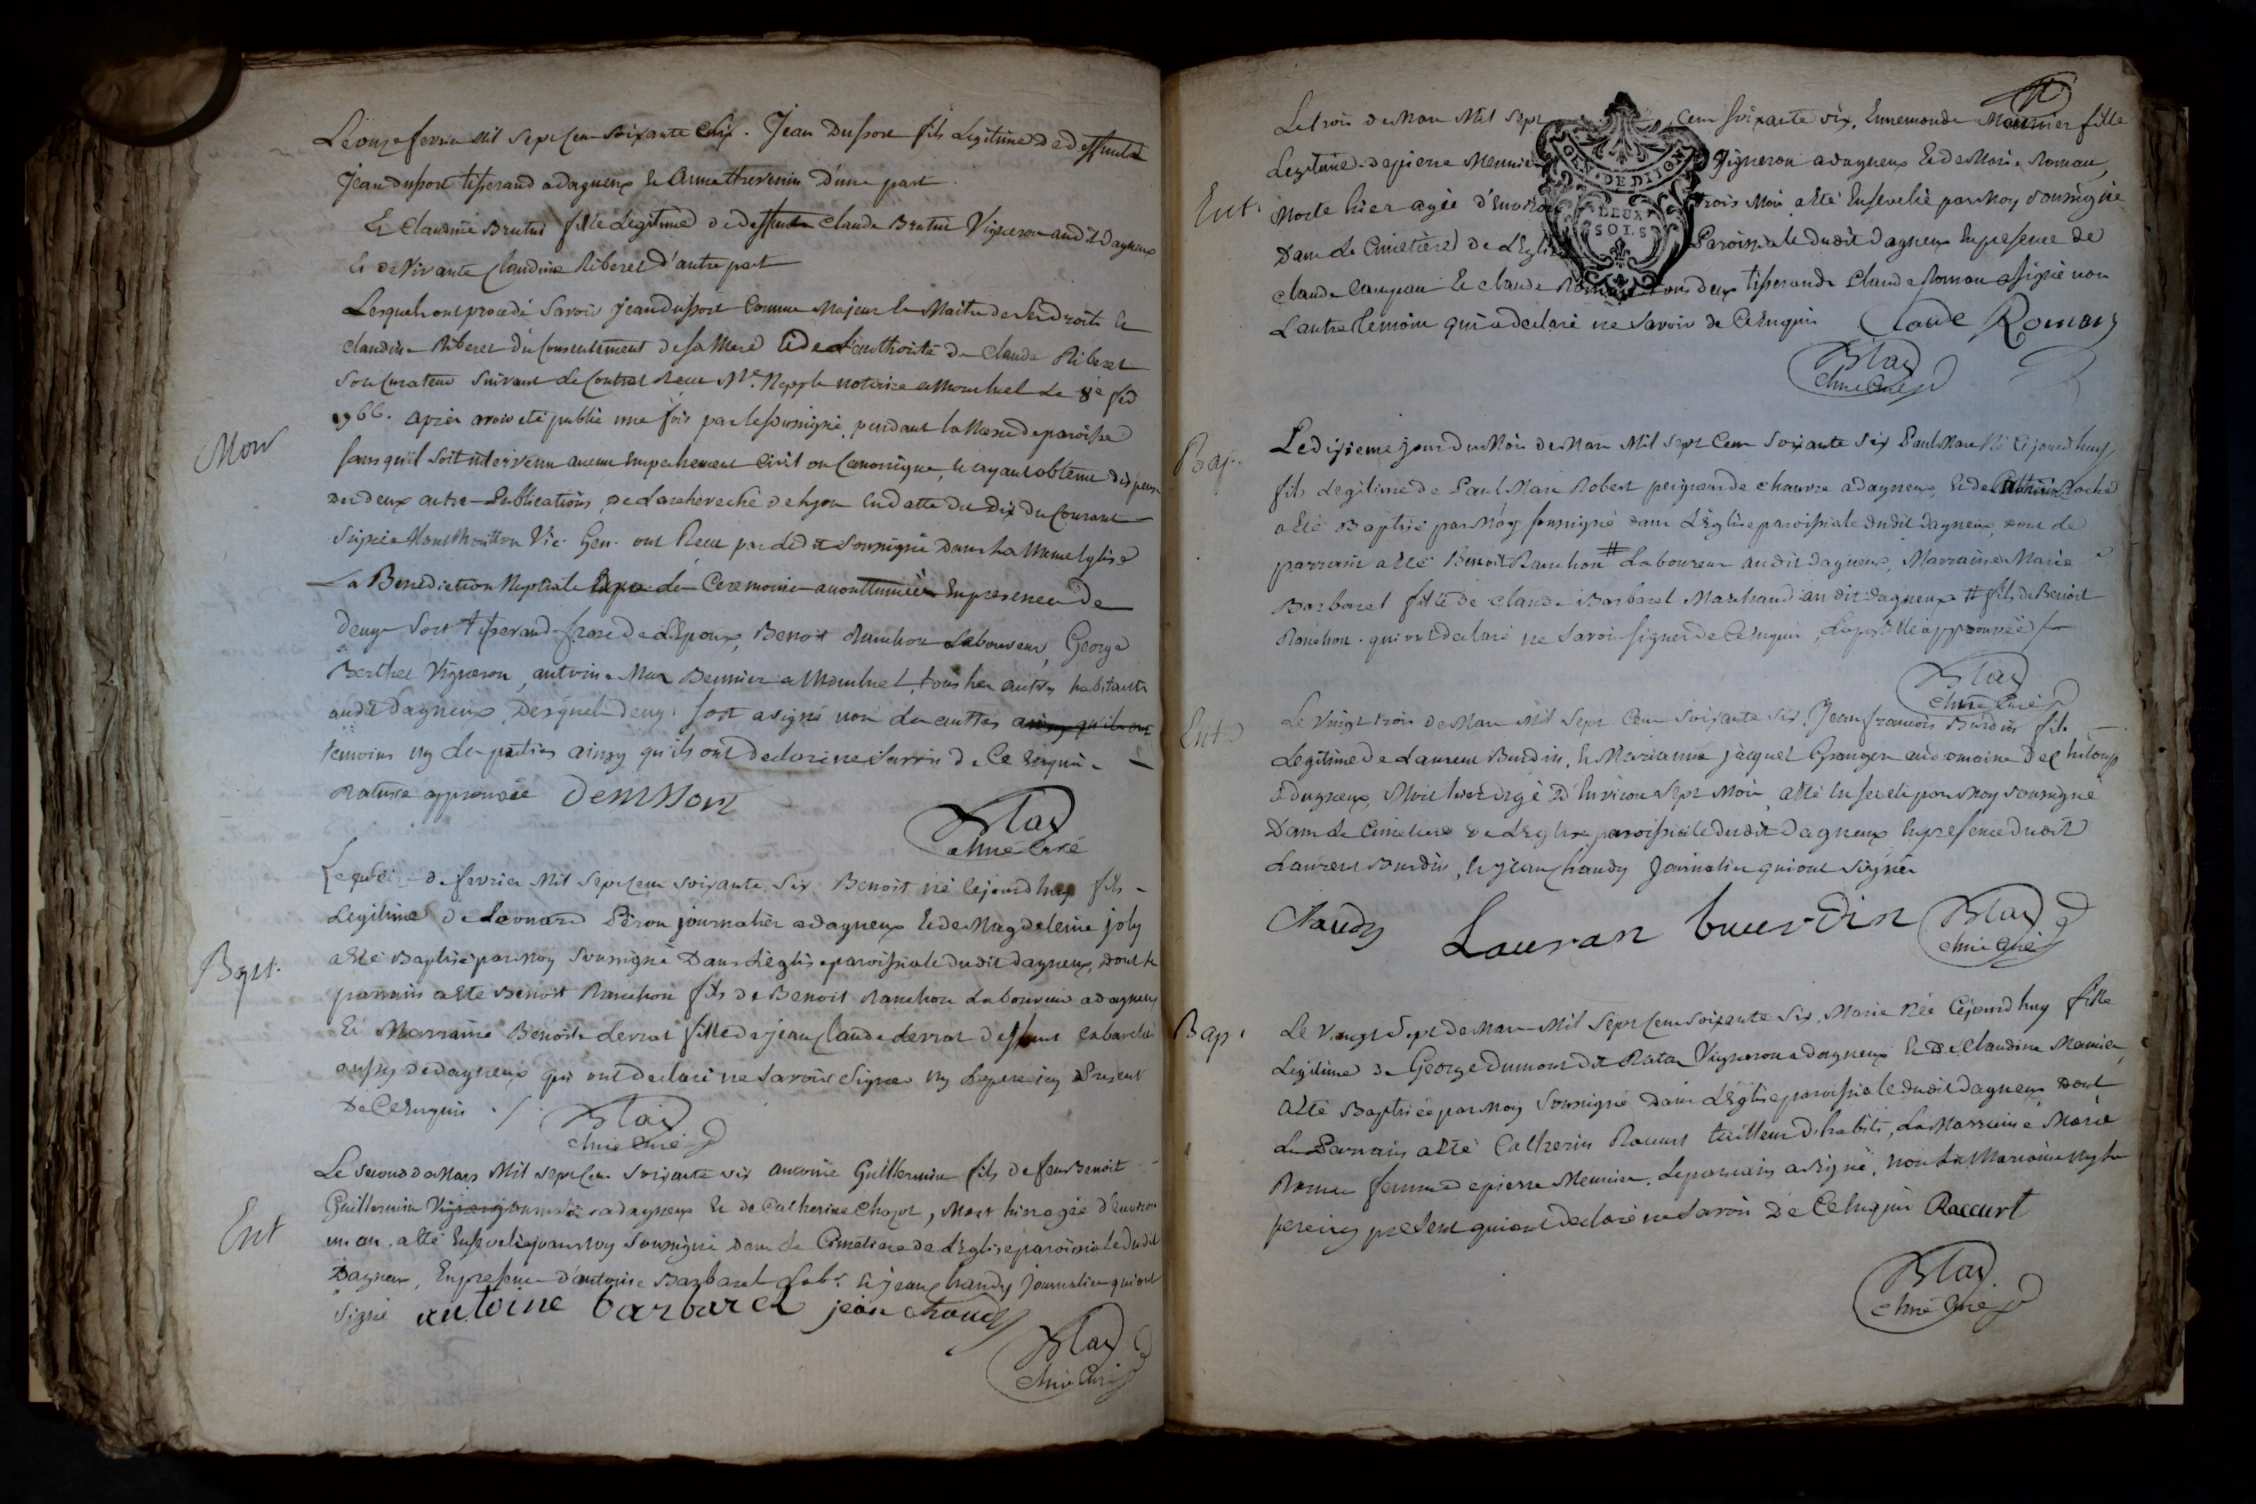 Le onze fevrier Mil Sept Cen Soixante Six. Jean Dufsort fils Legitime de deffunt
Jean dufsort tifserand a dagneux et Anne thevenin d'une part
Et Claudine Brutus fille Legitime de deffunt Claude Brutus Vigneron audit dagneux
Et de Vivante Claudine Riberet d'autre part
Lesquels ont procedé Savoir Jean dufsort Comme Majeur et Maitre de Ses Droits et
Claudine Riberet du Consentement de sa Mere et de L'authorité de Claude Riberet
Son Curateur Suivant Le Contrat Receu Me notaire a Montluel Le 8e fev
1766. apres avoir eté publié une fois par le soussigné pendant la Messe de paroisse
sans qu'il soit intervenu aucun Empechement Civil ou Canonique, et ayant obtenu dispense
Mar
des deux autres Publications de L'archeveché de Lyon en datte du dix du Courant
Signée Vic. Gen. ont Receu par dit Soussigné Dans La Meme Eglise
La Benediction Nuptiale Ceremonie accouttumée En presence de
denys Sort tifserand frere de L'Epoux, Benoit Ranchon Laboureur, George
Berthet Vigneron, antoine Mar a Montluel, tous les autres habitants
audit Dagneux, Desquels denys Sort a signé non les autres
temoins ny Les parties ainsy qu'ils ont declaré ne Savoir de Ce Enquis
Rature approuvée
Blay
Curé
Le de fevrier Mil Sept Cen Soixante Six Benoit né Cejourd'huy fils
Legitime de Leonard Peron journalier a dagneux et de Magdeleine joly
Bapt.
a eté Baptisé par Moy Soussigné Dans L'eglise paroissiale dudit dagneux, dont le
parrain a eté Benoit Ranchon fils de Benoit Ranchon Laboureur a dagneux
Et Marraine Benoite derrat fille de jean Claude derrat deffunt Cabaretier
aussy de dagneux qui ont declaré ne Savoir Signer ny Le pere icy Present
De Ce Enquis
Blay
Curé
Le Second de Mars Mil Sept Cen Soixante Six Guillermin fils de feu Benoit
Guillermin a dagneux Et de Catherine Chapot, Mort hier agé d'Environ
Ent
un an, a eté Enseveli par Moy Soussigné Dans Le Cimetiere de L'Eglise paroissiale dudit
Dagneux, En presence d'antoine Barbaret Lab. et jean Chaudy journalier qui ont
Signé antoine barbaret jean Chaudy
Blay
Curé
Le trois de Mars Mil Sept Cen Soixante Six, Ennemonde Meunier fille
Legitime de pierre Meunier Vigneron a dagneux Et de Marie Roman,
GEN. DE DIJON
DEUX
SOLS
Ent.
Morte hier agée d'Environ trois Mois a eté Ensevelie par Moy Soussigné
Dans Le Cimetiere de L'Eglise Paroissiale dudit Dagneux En presence de
Claude Et Claude Roman tous deux tifserands Claude Roman a signé non
L'autre temoin qui a declaré ne Savoir de Ce Enquis Claude Roman
Blay
Curé
Bap.
Le dixieme jour du Mois de Mars Mil Sept Cen Soixante Six Paul Marc Né Cejourd'huy
fils Legitime de Paul Marc Robert peigneur de chanvre a dagneux, Et de
a eté Baptisé par Moy soussigné dans L'Eglise paroissiale dudit Dagneux, dont le
parrain a eté Benoit Ranchon # Laboureur audit Dagneux, Marraine Marie
Barbaret fille de Claude Barbaret Marchand audit dagneux # fils de Benoit
Ranchon. qui ont declaré ne Savoir Signer de Ce Enquis, approuvée
Blay
Curé
Ent
Le Vingt trois de Mars Mil Sept Cen Soixante Six, Jean francois Burdin fils
Legitime de Laurent Burdin, Et Marianne jacquet Granger au domaine de
a dagneux, Mort hier agé d'Environ Sept Mois, a eté Enseveli par Moy Soussigné
Dans Le Cimetiere de L'Eglise paroissiale dudit Dagneux En presence dudit
Laurent Burdin, Et jean Chaudy Journalier qui ont Signé
Chaudy Lauran buurdin Blay
Curé
Bap.
Le Vingt Sept de Mars Mil Sept Cen Soixante Six, Marie Née Cejourd'huy fille
Legitime de George Dumont dit Rata Vigneron a dagneux Et de Claudine Meunier
a eté Baptisée par Moy Soussigné Dans L'Eglise paroissiale dudit Dagneux dont
Le Parrain a eté Catherin Raccurt tailleur d'habits, La Marraine Marie
Roman femme de pierre Meunier, Le parrain a Signé, non La Marraine ny Le
pere icy present qui ont declaré ne Savoir De Ce Enquis Raccurt
Blay
Curé